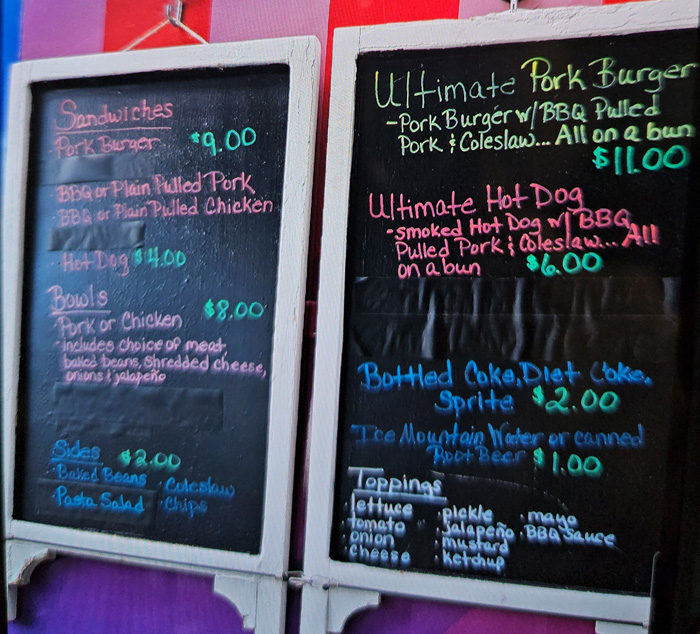 Sandwiches
Pork Burger $9.00
BBQ or Plain Pulled Pork
BBQ or Plain Pulled Chicken
Hot Dog $4.00
Bowls $8.00
Pork or Chicken
·includes choice of meat,
baked beans, shredded cheese,
onions & jalapeño
Sides $2.00
·Baked Beans ·Coleslaw
·Pasta Salad ·Chips
Ultimate Pork Burger
-Pork Burger w/BBQ Pulled
Pork & Coleslaw... All on a bun
$11.00
Ultimate Hot Dog
·smoked Hot Dog w/BBQ
Pulled Pork & Coleslaw... All
on a bun $6.00
Bottled Coke, Diet Coke,
Sprite $2.00
Ice Mountain Water or canned
Root Beer $1.00
Toppings
·lettuce ·pickle ·mayo
·tomato ·jalapeño ·BBQ Sauce
·onion ·mustard
·cheese ·ketchup